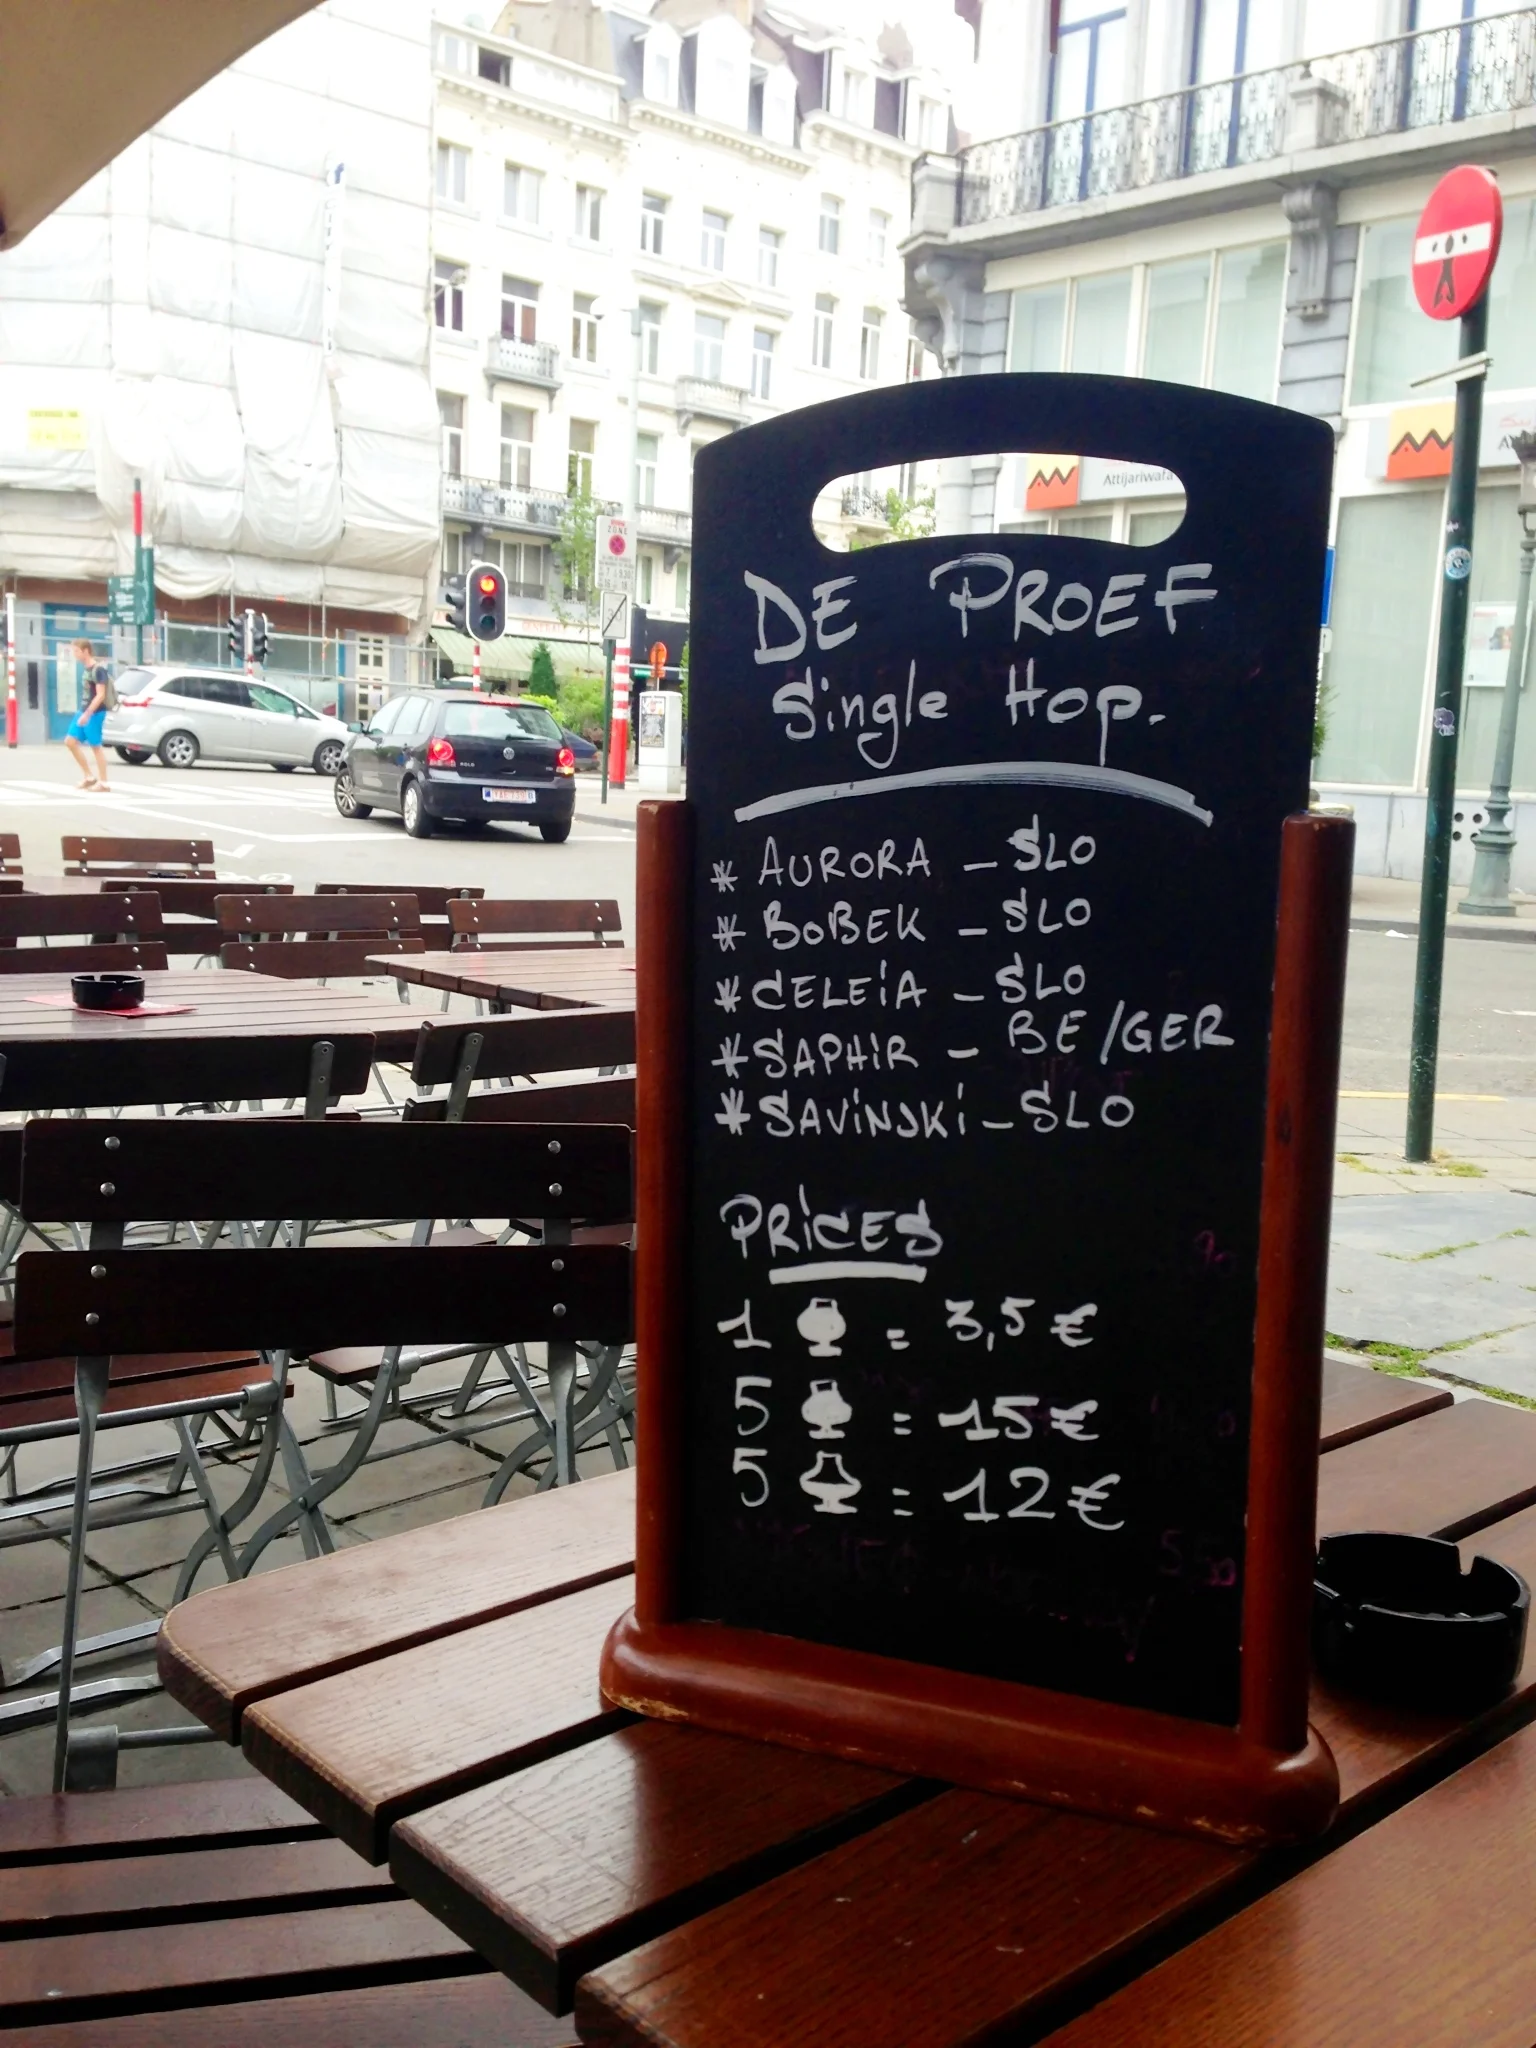 Attijariwafa
ZONE
DE PROEF
Single Hop.
* AURORA - SLO
* BOBEK - SLO
* CELEiA - SLO
* SAPHiR - BE/GER
* SAViNJKi - SLO
PRiCES
1 = 3,5 €
5 = 15 €
5 = 12 €